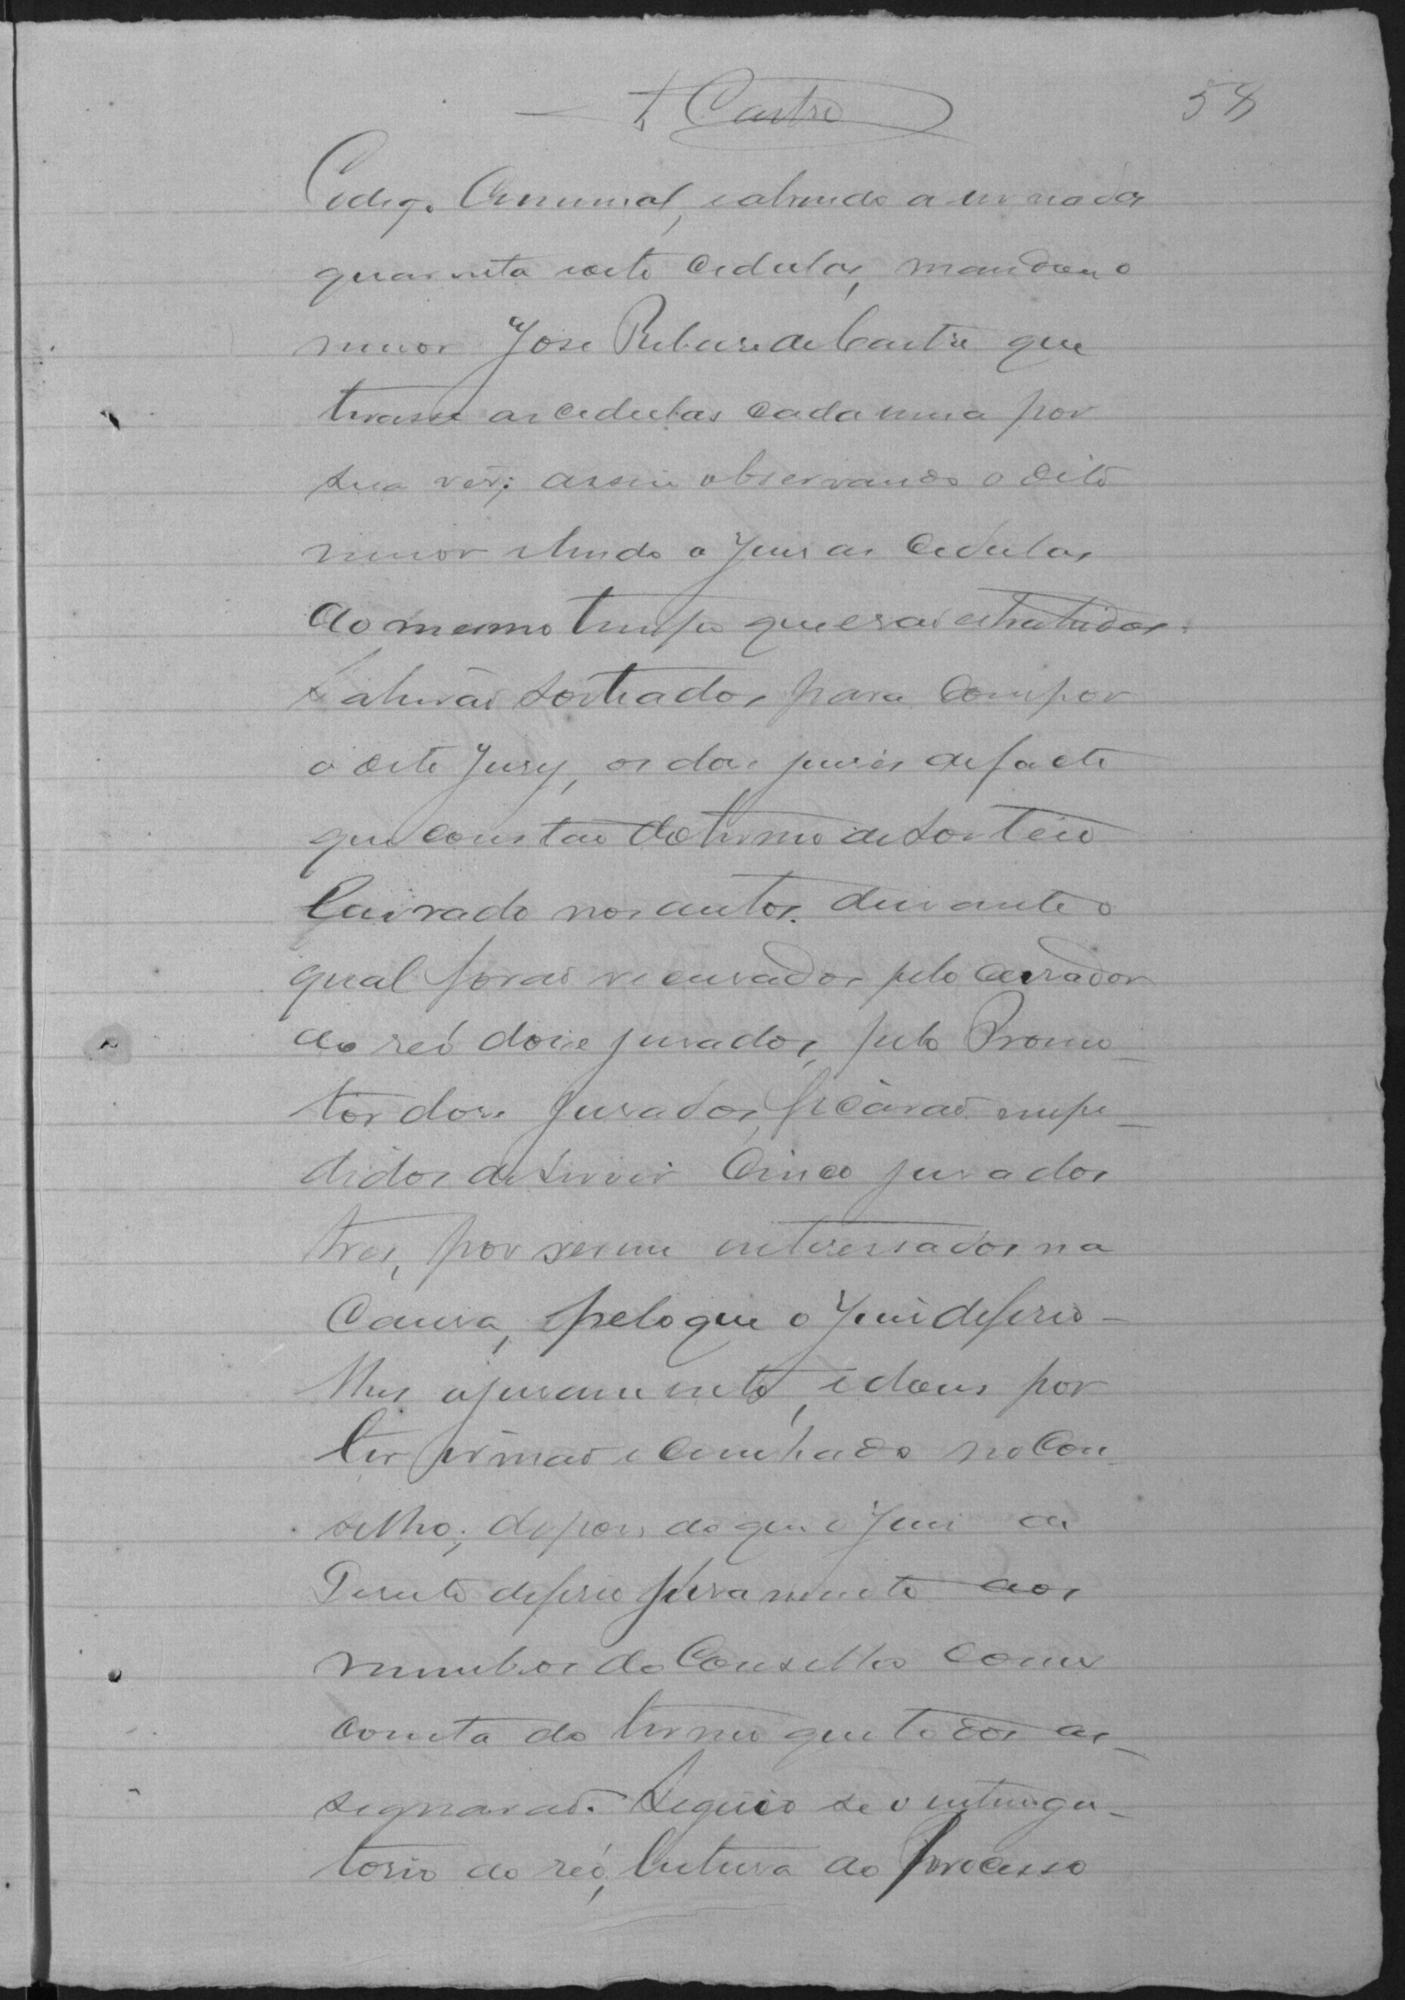 Castro 58
Codigo Criminal, e abrindo a urna das
quarenta e oito cedulas, mandou o
menor José Ribeiro de Castro que
tirasse as cedulas cada uma por
sua vez; assim observando o dito
menor e lendo o Juiz as cedulas
ao mesmo tempo que erao extrahidas.
Sahirão sorteados, para compor
o dito Jury, os doze juizes de facto
que constao do termo de sorteio
lavrado nos autos. durante o
qual forao recusados pelo curador
do reó dose jurados, pelo Promo-
tor dose jurados, ficárao impe-
didos de servir Cinco jurados
tres, por serem interessados na
Causa, pelo que o Juiz deferio-
lhes o juramento, e dous por
ter irmao e cunhado no Con-
selho; depois do que o Juiz de
Direito deferio juramento aos
membros do Conselho como
consta do termo que todos as-
signarao. Seguio se o interroga-
torio do reó, leitura do Processo